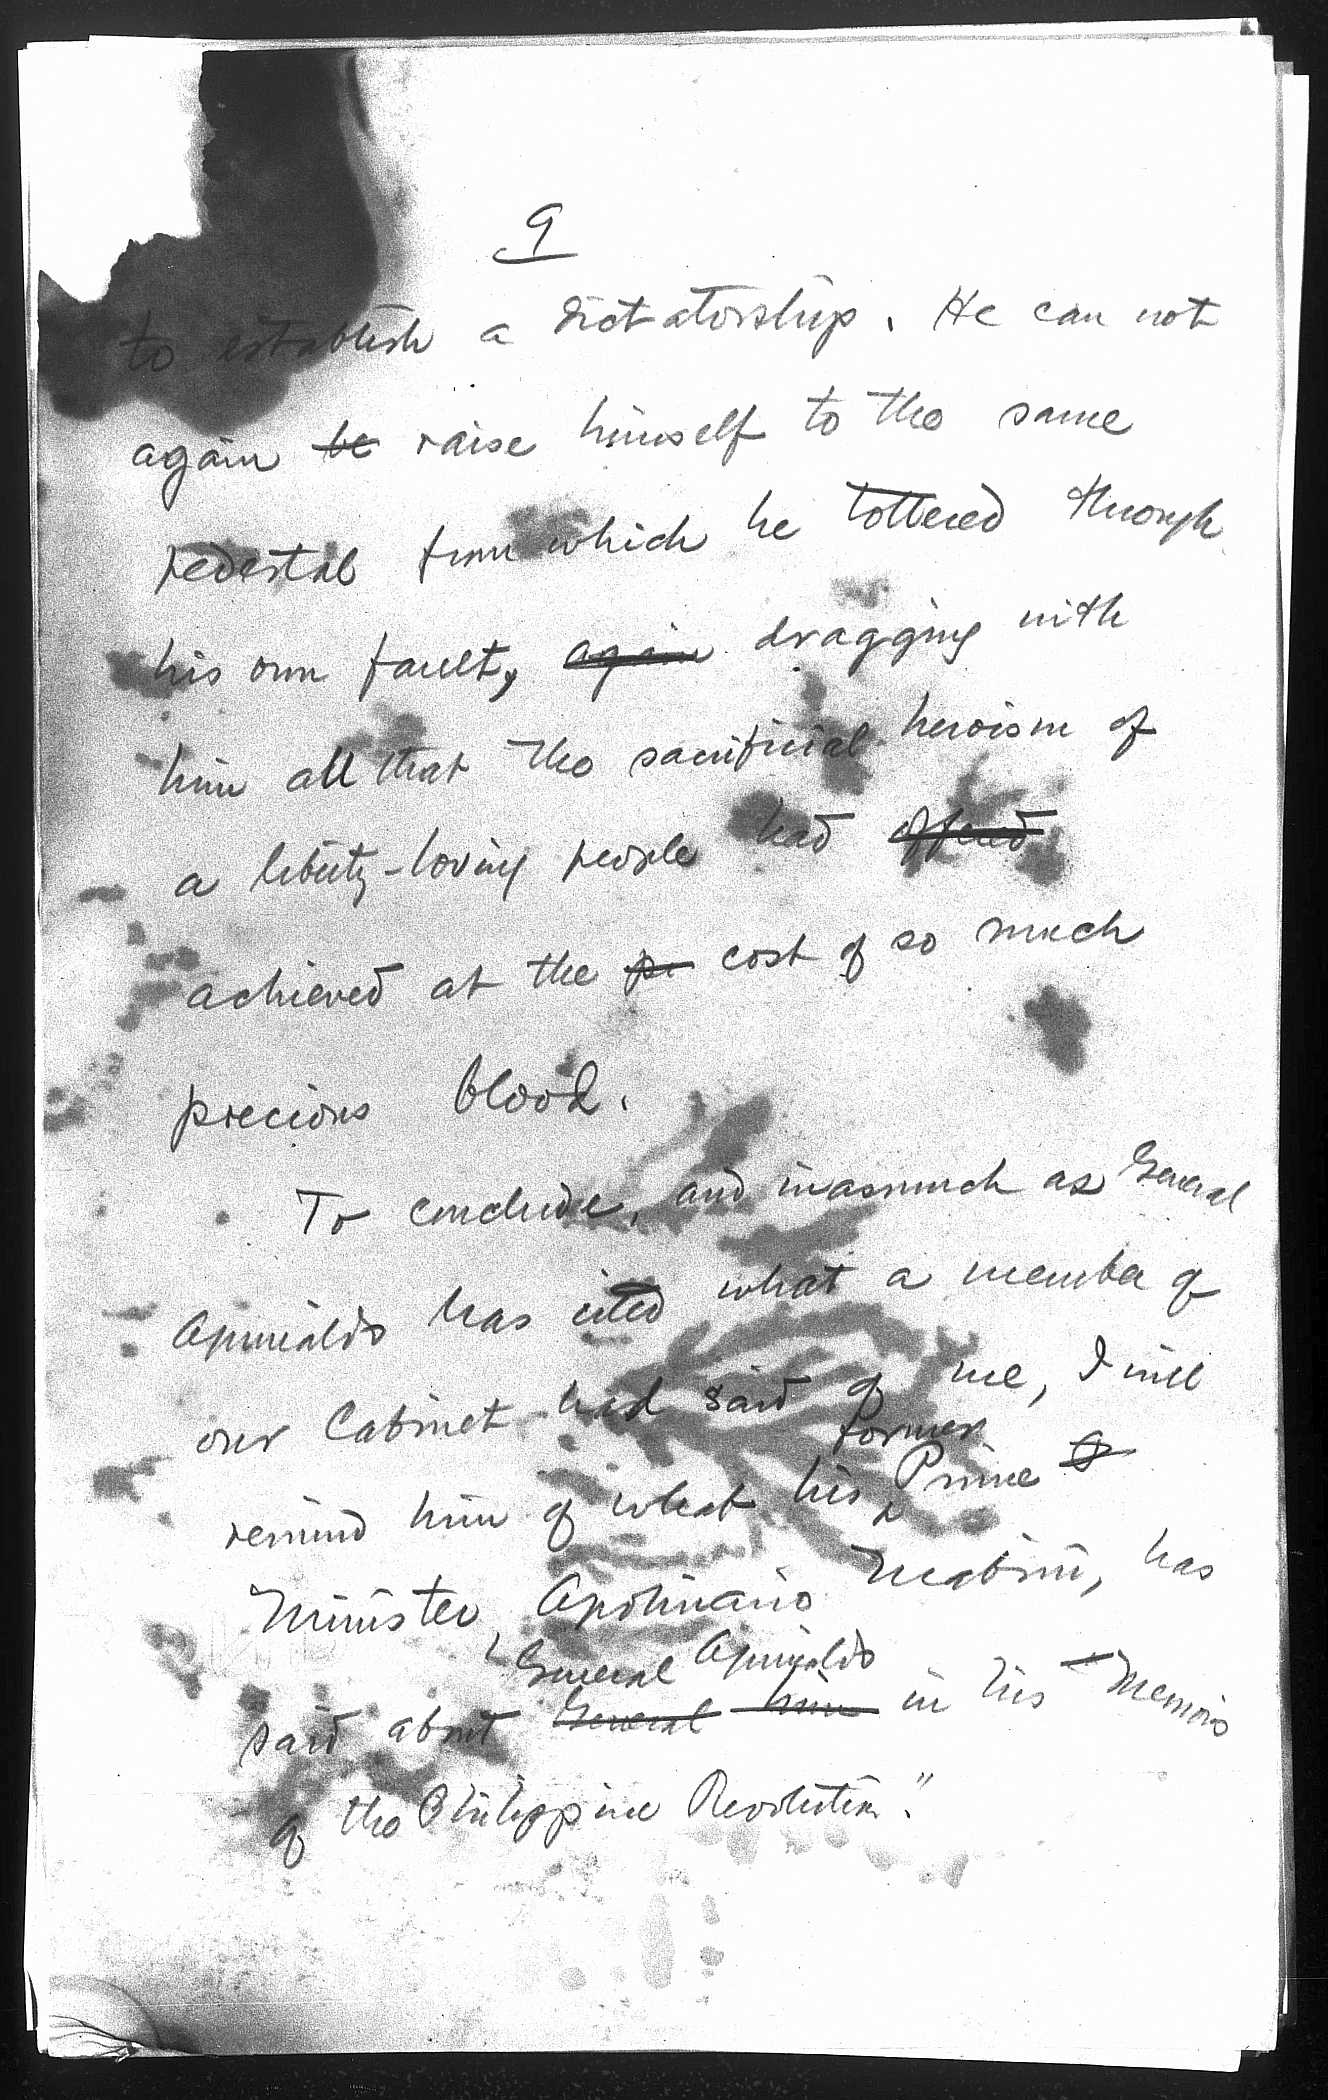 9
to establish a dictatorship. He can not
again be raise himself to the same
pedestal from which he tottered through
his own fault, again dragging with
him all that the sacrificial heroism of
a liberty-loving people had offered
achieved at the pr cost of so much
precious blood.
To conclude, and inasmuch as General
Aguinaldo has cited what a member of
our Cabinet had said of me, I will
former
remind him of what his Prime
Minister, Apolinario Mabini, has
General Aguinaldo
said about General him in his "Memoirs
of the Philippine Revolution."